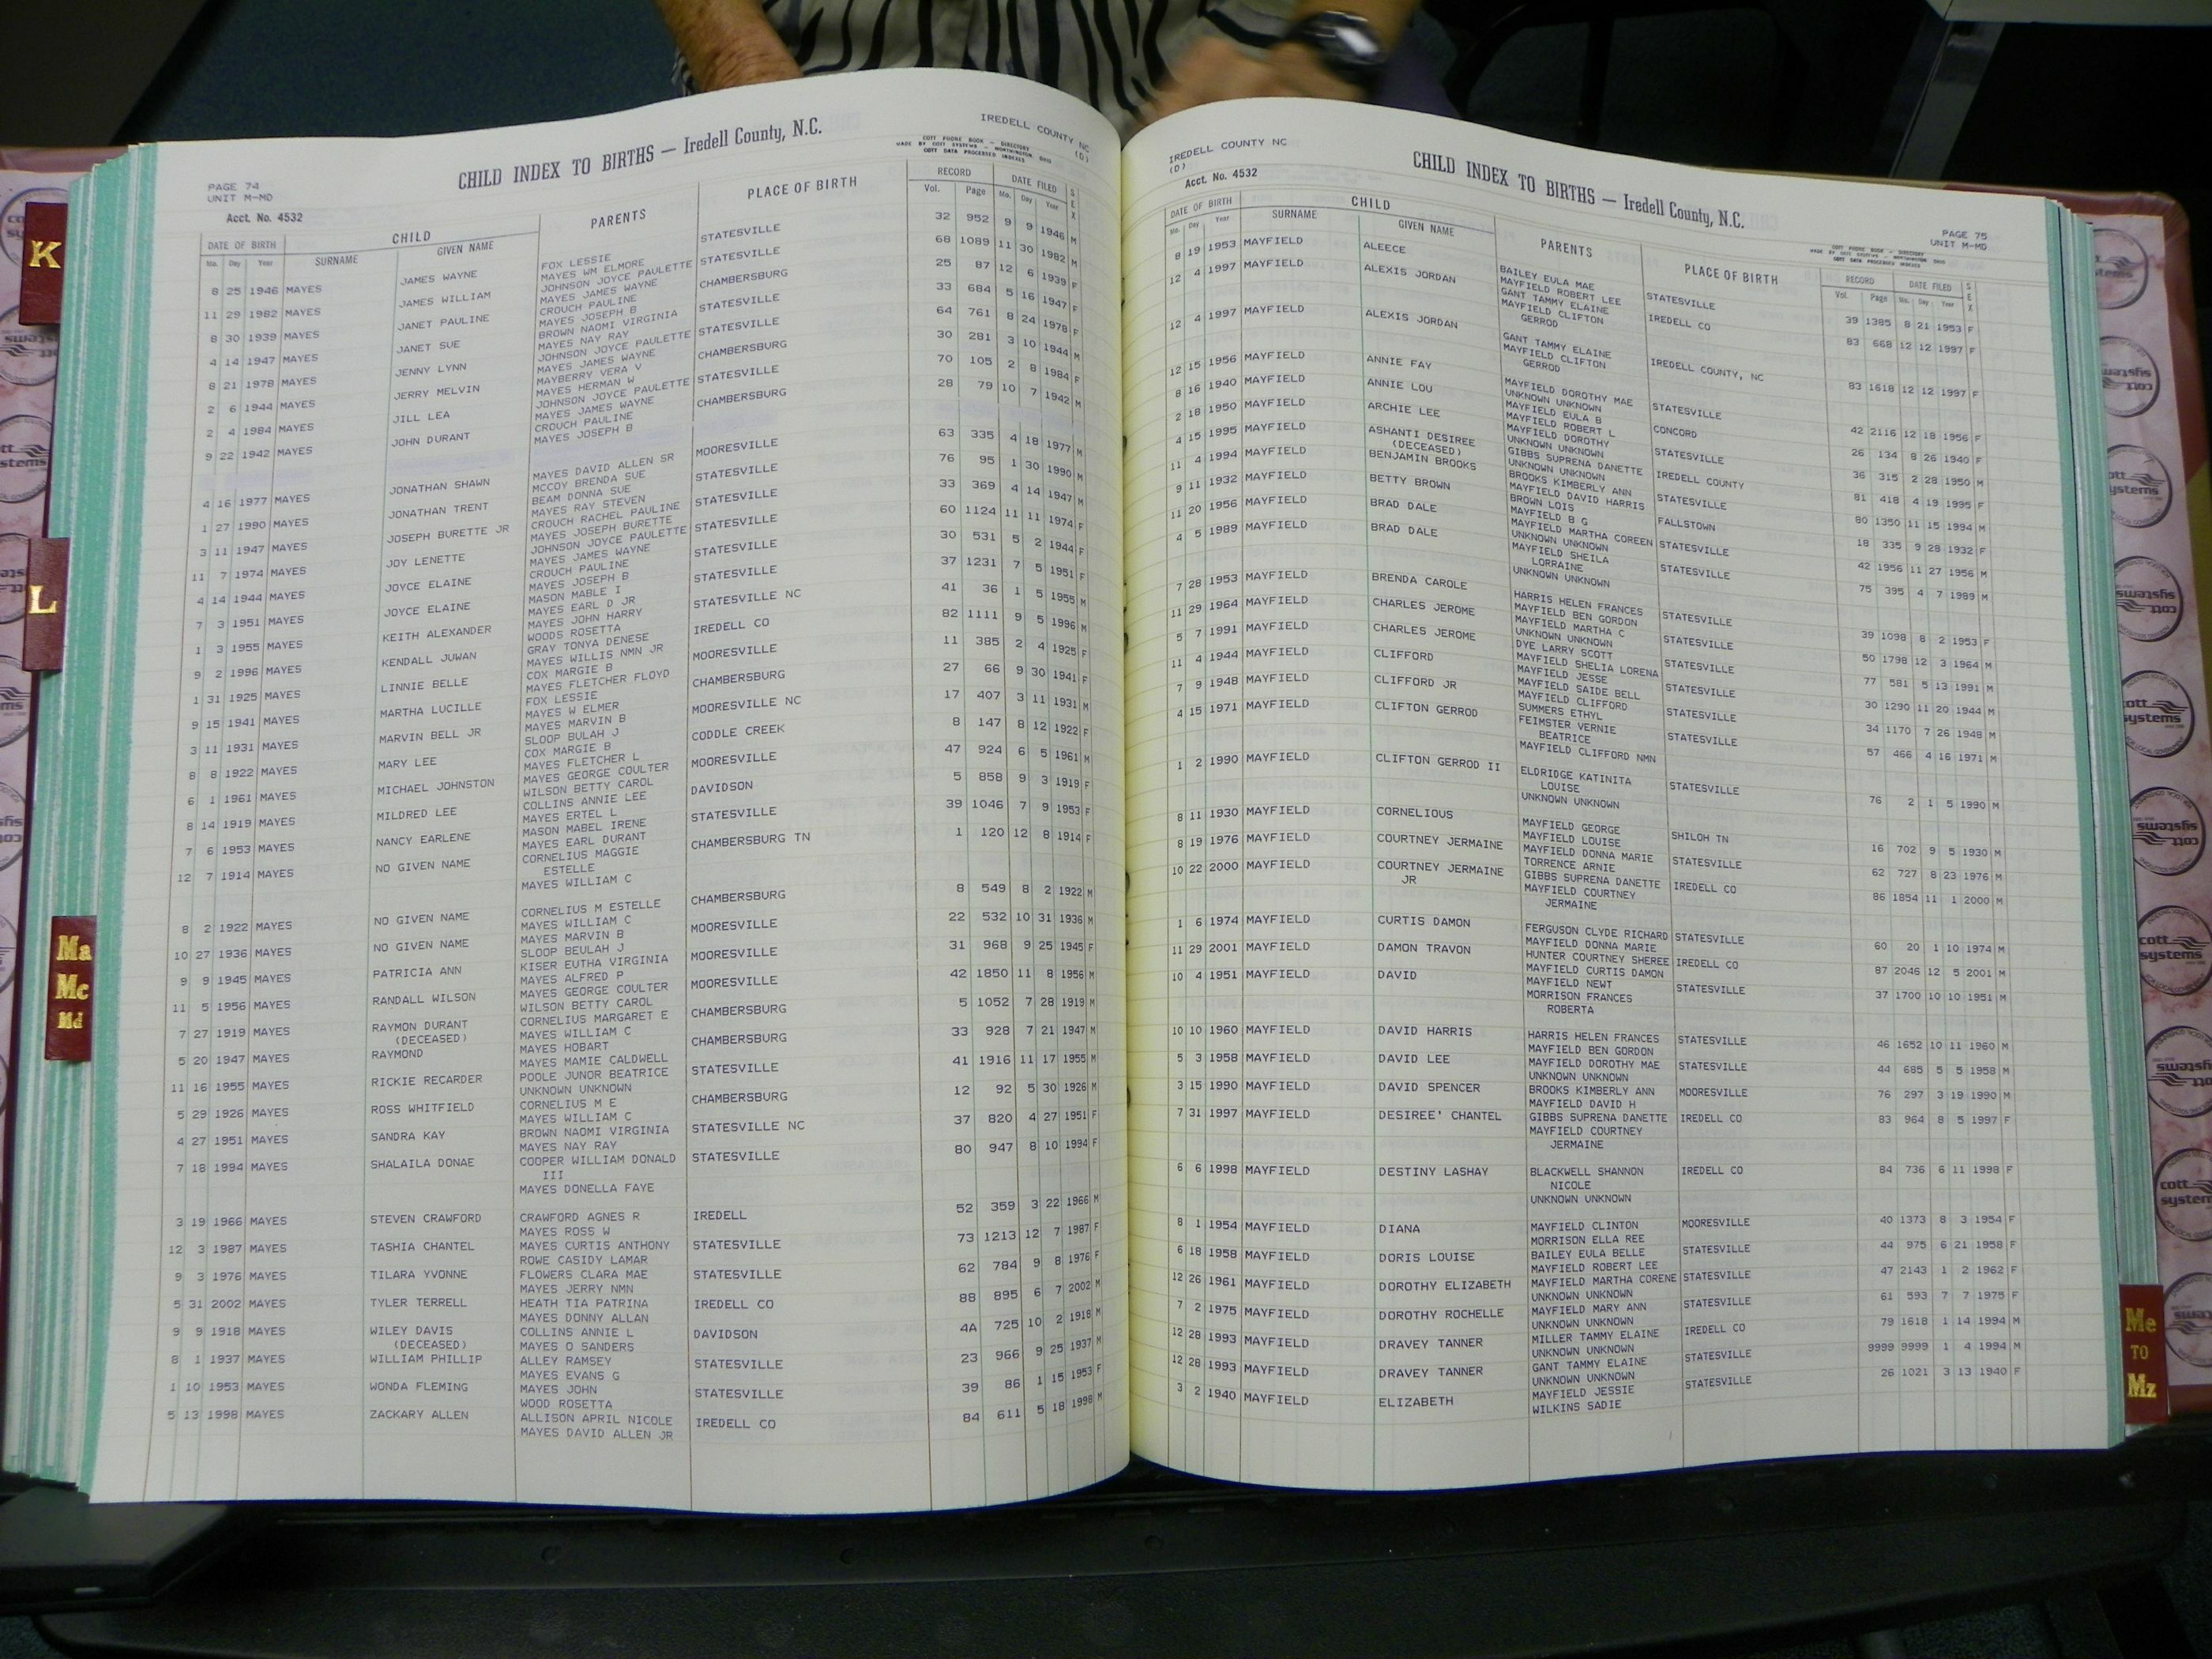 IREDELL COUNTY NC
(D)
CHILD INDEX TO BIRTHS — Iredell County, N.C.
COTT PHONE BOOK - DIRECTORY
MADE BY COTT SYSTEMS - WORTHINGTON, OHIO
COTT DATA PROCESSED INDEXES
PAGE 74
UNIT M-MD
Acct. No. 4532
DATE OF BIRTH CHILD PARENTS PLACE OF BIRTH RECORD DATE FILED SEX
Mo. Day Year SURNAME GIVEN NAME Vol. Page Mo. Day Year
8 25 1946 MAYES JAMES WAYNE FOX LESSIE STATESVILLE 32 952 9 9 1946 M
MAYES WM ELMORE
11 29 1982 MAYES JAMES WILLIAM JOHNSON JOYCE PAULETTE STATESVILLE 68 1089 11 30 1982 M
MAYES JAMES WAYNE
8 30 1939 MAYES JANET PAULINE CROUCH PAULINE CHAMBERSBURG 25 87 12 6 1939 F
MAYES JOSEPH B
4 14 1947 MAYES JANET SUE BROWN NAOMI VIRGINIA STATESVILLE 33 684 5 16 1947 F
MAYES NAY RAY
8 21 1978 MAYES JENNY LYNN JOHNSON JOYCE PAULETTE STATESVILLE 64 761 8 24 1978 F
MAYES JAMES WAYNE
2 6 1944 MAYES JERRY MELVIN MAYBERRY VERA V CHAMBERSBURG 30 281 3 10 1944 M
MAYES HERMAN W
2 4 1984 MAYES JILL LEA JOHNSON JOYCE PAULETTE STATESVILLE 70 105 2 8 1984 F
MAYES JAMES WAYNE
9 22 1942 MAYES JOHN DURANT CROUCH PAULINE CHAMBERSBURG 28 79 10 7 1942 M
MAYES JOSEPH B
4 16 1977 MAYES JONATHAN SHAWN MAYES DAVID ALLEN SR MOORESVILLE 63 335 4 18 1977 M
MCCOY BRENDA SUE
1 27 1990 MAYES JONATHAN TRENT BEAM DONNA SUE STATESVILLE 76 95 1 30 1990 M
MAYES RAY STEVEN
3 11 1947 MAYES JOSEPH BURETTE JR CROUCH RACHEL PAULINE STATESVILLE 33 369 4 14 1947 M
MAYES JOSEPH BURETTE
11 7 1974 MAYES JOY LENETTE JOHNSON JOYCE PAULETTE STATESVILLE 60 1124 11 11 1974 F
MAYES JAMES WAYNE
4 14 1944 MAYES JOYCE ELAINE CROUCH PAULINE STATESVILLE 30 531 5 2 1944 F
MAYES JOSEPH B
7 3 1951 MAYES JOYCE ELAINE MASON MABLE I STATESVILLE 37 1231 7 5 1951 F
MAYES EARL D JR
1 3 1955 MAYES KEITH ALEXANDER MAYES JOHN HARRY STATESVILLE NC 41 36 1 5 1955 M
WOODS ROSETTA
9 2 1996 MAYES KENDALL JUWAN GRAY TONYA DENESE IREDELL CO 82 1111 9 5 1996 M
MAYES WILLIS NMN JR
1 31 1925 MAYES LINNIE BELLE COX MARGIE B MOORESVILLE 11 385 2 4 1925 F
MAYES FLETCHER FLOYD
9 15 1941 MAYES MARTHA LUCILLE FOX LESSIE CHAMBERSBURG 27 66 9 30 1941 F
MAYES W ELMER
3 11 1931 MAYES MARVIN BELL JR MAYES MARVIN B MOORESVILLE NC 17 407 3 11 1931 M
SLOOP BULAH J
8 8 1922 MAYES MARY LEE COX MARGIE B CODDLE CREEK 8 147 8 12 1922 F
MAYES FLETCHER L
6 1 1961 MAYES MICHAEL JOHNSTON MAYES GEORGE COULTER MOORESVILLE 47 924 6 5 1961 M
WILSON BETTY CAROL
8 14 1919 MAYES MILDRED LEE COLLINS ANNIE LEE DAVIDSON 5 858 9 3 1919 F
MAYES ERTEL L
7 6 1953 MAYES NANCY EARLENE MASON MABEL IRENE STATESVILLE 39 1046 7 9 1953 F
MAYES EARL DURANT
12 7 1914 MAYES NO GIVEN NAME CORNELIUS MAGGIE CHAMBERSBURG TN 1 120 12 8 1914 F
ESTELLE
MAYES WILLIAM C
8 2 1922 MAYES NO GIVEN NAME CORNELIUS M ESTELLE CHAMBERSBURG 8 549 8 2 1922 M
MAYES WILLIAM C
10 27 1936 MAYES NO GIVEN NAME MAYES MARVIN B MOORESVILLE 22 532 10 31 1936 M
SLOOP BEULAH J
9 9 1945 MAYES PATRICIA ANN KISER EUTHA VIRGINIA MOORESVILLE 31 968 9 25 1945 F
MAYES ALFRED P
11 5 1956 MAYES RANDALL WILSON MAYES GEORGE COULTER MOORESVILLE 42 1850 11 8 1956 M
WILSON BETTY CAROL
7 27 1919 MAYES RAYMON DURANT CORNELIUS MARGARET E CHAMBERSBURG 5 1052 7 28 1919 M
(DECEASED) MAYES WILLIAM C
5 20 1947 MAYES RAYMOND MAYES HOBART CHAMBERSBURG 33 928 7 21 1947 M
MAYES MAMIE CALDWELL
11 16 1955 MAYES RICKIE RECARDER POOLE JUNOR BEATRICE STATESVILLE 41 1916 11 17 1955 M
UNKNOWN UNKNOWN
5 29 1926 MAYES ROSS WHITFIELD CORNELIUS M E CHAMBERSBURG 12 92 5 30 1926 M
MAYES WILLIAM C
4 27 1951 MAYES SANDRA KAY BROWN NAOMI VIRGINIA STATESVILLE NC 37 820 4 27 1951 F
MAYES NAY RAY
7 18 1994 MAYES SHALAILA DONAE COOPER WILLIAM DONALD STATESVILLE 80 947 8 10 1994 F
III
MAYES DONELLA FAYE
3 19 1966 MAYES STEVEN CRAWFORD CRAWFORD AGNES R IREDELL 52 359 3 22 1966 M
MAYES ROSS W
12 3 1987 MAYES TASHIA CHANTEL MAYES CURTIS ANTHONY STATESVILLE 73 1213 12 7 1987 F
ROWE CASIDY LAMAR
9 3 1976 MAYES TILARA YVONNE FLOWERS CLARA MAE STATESVILLE 62 784 9 8 1976 F
MAYES JERRY NMN
5 31 2002 MAYES TYLER TERRELL HEATH TIA PATRINA IREDELL CO 88 895 6 7 2002 M
MAYES DONNY ALLAN
9 9 1918 MAYES WILEY DAVIS COLLINS ANNIE L DAVIDSON 4A 725 10 2 1918 M
(DECEASED) MAYES O SANDERS
8 1 1937 MAYES WILLIAM PHILLIP ALLEY RAMSEY STATESVILLE 23 966 9 25 1937 M
MAYES EVANS G
1 10 1953 MAYES WONDA FLEMING MAYES JOHN STATESVILLE 39 86 1 15 1953 F
WOOD ROSETTA
5 13 1998 MAYES ZACKARY ALLEN ALLISON APRIL NICOLE IREDELL CO 84 611 5 18 1998 M
MAYES DAVID ALLEN JR
IREDELL COUNTY NC
(D)
Acct. No. 4532
CHILD INDEX TO BIRTHS — Iredell County, N.C.
PAGE 75
UNIT M-MD
COTT PHONE BOOK - DIRECTORY
MADE BY COTT SYSTEMS - WORTHINGTON, OHIO
COTT DATA PROCESSED INDEXES
DATE OF BIRTH CHILD PARENTS PLACE OF BIRTH RECORD DATE FILED SEX
Mo. Day Year SURNAME GIVEN NAME Vol. Page Mo. Day Year
8 19 1953 MAYFIELD ALEECE BAILEY EULA MAE STATESVILLE 39 1385 8 21 1953 F
MAYFIELD ROBERT LEE
12 4 1997 MAYFIELD ALEXIS JORDAN GANT TAMMY ELAINE IREDELL CO 83 668 12 12 1997 F
MAYFIELD CLIFTON
GERROD
12 4 1997 MAYFIELD ALEXIS JORDAN GANT TAMMY ELAINE IREDELL COUNTY, NC 83 1618 12 12 1997 F
MAYFIELD CLIFTON
GERROD
12 15 1956 MAYFIELD ANNIE FAY MAYFIELD DOROTHY MAE STATESVILLE 42 2116 12 18 1956 F
UNKNOWN UNKNOWN
8 16 1940 MAYFIELD ANNIE LOU MAYFIELD EULA B CONCORD 26 134 8 26 1940 F
MAYFIELD ROBERT L
2 18 1950 MAYFIELD ARCHIE LEE MAYFIELD DOROTHY STATESVILLE 36 315 2 28 1950 M
UNKNOWN UNKNOWN
4 15 1995 MAYFIELD ASHANTI DESIREE GIBBS SUPRENA DANETTE IREDELL COUNTY 81 418 4 19 1995 F
(DECEASED) UNKNOWN UNKNOWN
11 4 1994 MAYFIELD BENJAMIN BROOKS BROOKS KIMBERLY ANN STATESVILLE 80 1350 11 15 1994 M
MAYFIELD DAVID HARRIS
9 11 1932 MAYFIELD BETTY BROWN BROWN LOIS FALLSTOWN 18 335 9 28 1932 F
MAYFIELD B G
11 20 1956 MAYFIELD BRAD DALE MAYFIELD MARTHA COREEN STATESVILLE 42 1956 11 27 1956 M
UNKNOWN UNKNOWN
4 5 1989 MAYFIELD BRAD DALE MAYFIELD SHEILA STATESVILLE 75 395 4 7 1989 M
LORRAINE
UNKNOWN UNKNOWN
7 28 1953 MAYFIELD BRENDA CAROLE HARRIS HELEN FRANCES STATESVILLE 39 1098 8 2 1953 F
MAYFIELD BEN GORDON
11 29 1964 MAYFIELD CHARLES JEROME MAYFIELD MARTHA C STATESVILLE 50 1798 12 3 1964 M
UNKNOWN UNKNOWN
5 7 1991 MAYFIELD CHARLES JEROME DYE LARRY SCOTT STATESVILLE 77 581 5 13 1991 M
MAYFIELD SHELIA LORENA
11 4 1944 MAYFIELD CLIFFORD MAYFIELD JESSE STATESVILLE 30 1290 11 20 1944 M
MAYFIELD SAIDE BELL
7 9 1948 MAYFIELD CLIFFORD JR MAYFIELD CLIFFORD STATESVILLE 34 1170 7 26 1948 M
SUMMERS ETHYL
4 15 1971 MAYFIELD CLIFTON GERROD FEIMSTER VERNIE STATESVILLE 57 466 4 16 1971 M
BEATRICE
MAYFIELD CLIFFORD NMN
1 2 1990 MAYFIELD CLIFTON GERROD II ELDRIDGE KATINITA STATESVILLE 76 2 1 5 1990 M
LOUISE
UNKNOWN UNKNOWN
8 11 1930 MAYFIELD CORNELIOUS MAYFIELD GEORGE SHILOH TN 16 702 9 5 1930 M
MAYFIELD LOUISE
8 19 1976 MAYFIELD COURTNEY JERMAINE MAYFIELD DONNA MARIE STATESVILLE 62 727 8 23 1976 M
TORRENCE ARNIE
10 22 2000 MAYFIELD COURTNEY JERMAINE GIBBS SUPRENA DANETTE IREDELL CO 86 1854 11 1 2000 M
JR MAYFIELD COURTNEY
JERMAINE
1 6 1974 MAYFIELD CURTIS DAMON FERGUSON CLYDE RICHARD STATESVILLE 60 20 1 10 1974 M
MAYFIELD DONNA MARIE
11 29 2001 MAYFIELD DAMON TRAVON HUNTER COURTNEY SHEREE IREDELL CO 87 2046 12 5 2001 M
MAYFIELD CURTIS DAMON
10 4 1951 MAYFIELD DAVID MAYFIELD NEWT STATESVILLE 37 1700 10 10 1951 M
MORRISON FRANCES
ROBERTA
10 10 1960 MAYFIELD DAVID HARRIS HARRIS HELEN FRANCES STATESVILLE 46 1652 10 11 1960 M
MAYFIELD BEN GORDON
5 3 1958 MAYFIELD DAVID LEE MAYFIELD DOROTHY MAE STATESVILLE 44 685 5 5 1958 M
UNKNOWN UNKNOWN
3 15 1990 MAYFIELD DAVID SPENCER BROOKS KIMBERLY ANN MOORESVILLE 76 297 3 19 1990 M
MAYFIELD DAVID H
7 31 1997 MAYFIELD DESIREE' CHANTEL GIBBS SUPRENA DANETTE IREDELL CO 83 964 8 5 1997 F
MAYFIELD COURTNEY
JERMAINE
6 6 1998 MAYFIELD DESTINY LASHAY BLACKWELL SHANNON IREDELL CO 84 736 6 11 1998 F
NICOLE
UNKNOWN UNKNOWN
8 1 1954 MAYFIELD DIANA MAYFIELD CLINTON MOORESVILLE 40 1373 8 3 1954 F
MORRISON ELLA REE
6 18 1958 MAYFIELD DORIS LOUISE BAILEY EULA BELLE STATESVILLE 44 975 6 21 1958 F
MAYFIELD ROBERT LEE
12 26 1961 MAYFIELD DOROTHY ELIZABETH MAYFIELD MARTHA CORENE STATESVILLE 47 2143 1 2 1962 F
UNKNOWN UNKNOWN
7 2 1975 MAYFIELD DOROTHY ROCHELLE MAYFIELD MARY ANN STATESVILLE 61 593 7 7 1975 F
UNKNOWN UNKNOWN
12 28 1993 MAYFIELD DRAVEY TANNER MILLER TAMMY ELAINE IREDELL CO 79 1618 1 14 1994 M
UNKNOWN UNKNOWN
12 28 1993 MAYFIELD DRAVEY TANNER GANT TAMMY ELAINE STATESVILLE 9999 9999 1 4 1994 M
UNKNOWN UNKNOWN
3 2 1940 MAYFIELD ELIZABETH MAYFIELD JESSIE STATESVILLE 26 1021 3 13 1940 F
WILKINS SADIE
K
L
Ma
Mc
Md
Me
TO
Mz
cott
systems